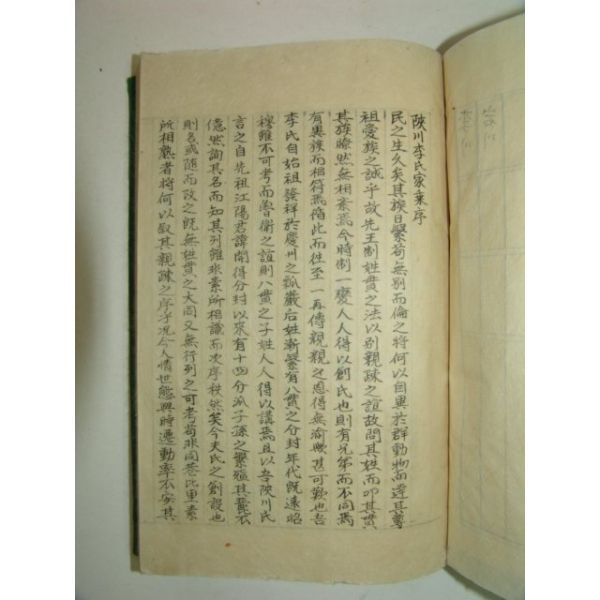 陜川李氏家乘序
民之生久矣其族日繁苟無別而倫之將何以自異於群動物而達其尊
祖愛族之誠乎故先王制姓貫之法以別親疎之誼故問其姓而叩其貫
其族瞭然無相紊焉今時制一變人人得以創氏也則有兄弟而不同焉
有異族而相符焉循此而往至一再傳親親之恩得無渝歟甚可歎也吾
李氏自始祖發祥於慶州之瓢巖后姓漸繁有八貫之分封年代旣遠昭
穆雖不可考而魯衛之誼則八貫之子姓人人得以講焉且以吾陜川氏
言之自先祖江陽君諱開得分封以來有十四分派子孫之繁殖其麗不
億然詢其名而知其列雖非素所相識而次序秩然矣今夫氏之創設也
則名或隨而改之旣無姓貫之大同又無行列之可考苟非同巷比里素
所相熟者將何以叙其親疎之序乎况今人情世態與時遷動率不安其